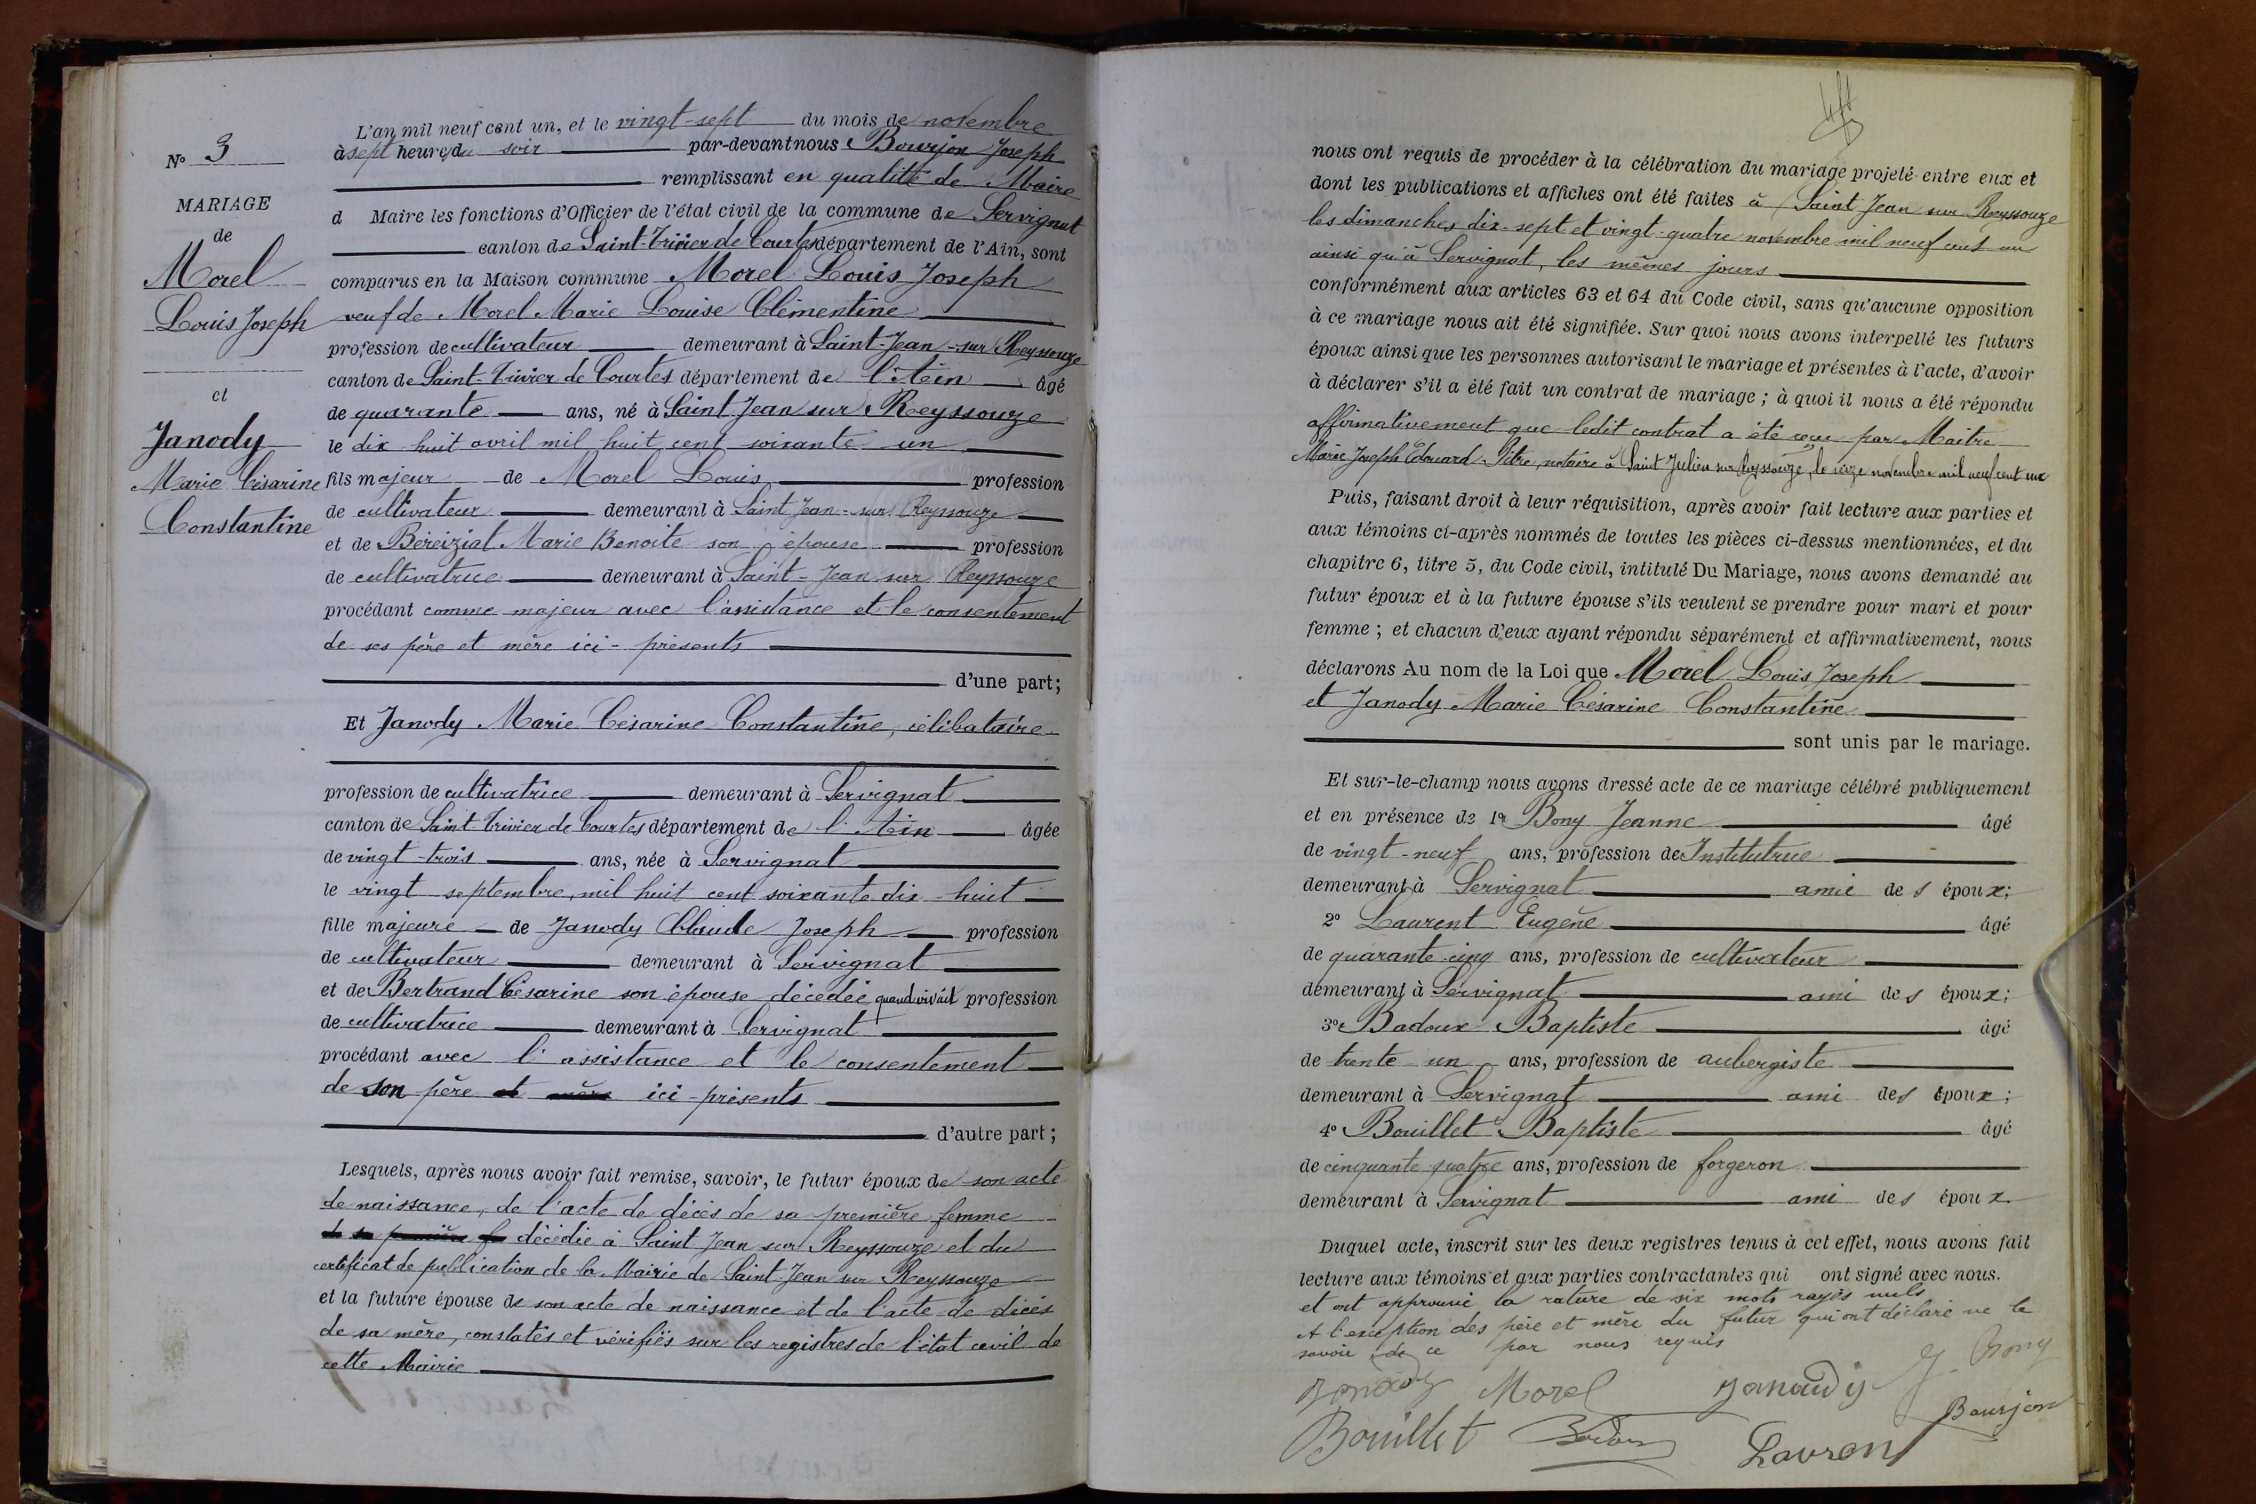 N° 3
MARIAGE
de
Morel
Louis Joseph
et
Janody
Marie Césarine
Constantine
L'an mil neuf cent un, et le vingt-sept du mois de novembre
à sept heures du soir par-devant nous Bourjon Joseph
remplissant en qualité de Maire
d Maire les fonctions d'Officier de l'état civil de la commune de Servignat
canton de Saint-Trivier de Courtes département de l'Ain, sont
comparus en la Maison commune Morel Louis Joseph
veuf de Morel Marie Louise Clémentine
profession de cultivateur demeurant à Saint-Jean-sur Reyssouze
canton de Saint-Trivier de Courtes département de l'Ain âgé
de quarante ans, né à Saint Jean sur Reyssouze
le dix huit avril mil huit cent soixante un
fils majeur de Morel Louis profession
de cultivateur demeurant à Saint Jean-sur Reyssouze
et de Béreizial Marie Benoite son épouse profession
de cultivatrice demeurant à Saint-Jean sur Reyssouze
procédant comme majeur avec l'assistance et le consentement
de ses père et mère ici-présents
d'une part;
Et Janody Marie Césarine Constantine, célibataire
profession de cultivatrice demeurant à Servignat
canton de Saint Trivier de Courtes département de l'Ain âgée
de vingt-trois ans, née à Servignat
le vingt septembre mil huit cent soixante dix-huit
fille majeure de Janody Claude Joseph profession
de cultivateur demeurant à Servignat
et de Bertrand Césarine son épouse décédée quand vivait profession
de cultivatrice demeurant à Servignat
procédant avec l'assistance et le consentement
de son père et mère ici-présents
d'autre part;
Lesquels, après nous avoir fait remise, savoir, le futur époux de son acte
de naissance, de l'acte de décès de sa première femme
de sa première fe décédée à Saint Jean sur Reyssouze et du
certificat de publication de la Mairie de Saint-Jean sur Reyssouze
et la future épouse de son acte de naissance et de l'acte de décès
de sa mère, constatés et vérifiés sur les registres de l'état civil de
cette Mairie
nous ont requis de procéder à la célébration du mariage projeté entre eux et
dont les publications et affiches ont été faites à Saint Jean sur Reyssouze
les dimanches dix-sept et vingt-quatre novembre mil neuf cent un
ainsi qu'à Servignat, les mêmes jours
conformément aux articles 63 et 64 du Code civil, sans qu'aucune opposition
à ce mariage nous ait été signifiée. Sur quoi nous avons interpellé les futurs
époux ainsi que les personnes autorisant le mariage et présentes à l'acte, d'avoir
à déclarer s'il a été fait un contrat de mariage ; à quoi il nous a été répondu
affirmativement que ledit contrat a été reçu par Maitre
Marie Joseph Edouard Pitre, notaire à Saint Julien sur Reyssouze, le seize novembre mil neuf cent un
Puis, faisant droit à leur réquisition, après avoir fait lecture aux parties et
aux témoins ci-après nommés de toutes les pièces ci-dessus mentionnées, et du
chapitre 6, titre 5, du Code civil, intitulé Du Mariage, nous avons demandé au
futur époux et à la future épouse s'ils veulent se prendre pour mari et pour
femme ; et chacun d'eux ayant répondu séparément et affirmativement, nous
déclarons Au nom de la Loi que Morel Louis Joseph
et Janody Marie Césarine Constantine
sont unis par le mariage.
Et sur-le-champ nous avons dressé acte de ce mariage célébré publiquement
et en présence de 1° Bony Jeanne âgé
de vingt-neuf ans, profession de Institutrice
demeurant à Servignat amie des époux;
2° Laurent Eugène âgé
de quarante cinq ans, profession de cultivateur
demeurant à Servignat ami des époux;
3° Badoux Baptiste âgé
de trente un ans, profession de aubergiste
demeurant à Servignat ami des époux;
4° Bouillet Baptiste âgé
de cinquante quatre ans, profession de forgeron
demeurant à Servignat ami des époux
Duquel acte, inscrit sur les deux registres tenus à cet effet, nous avons fait
lecture aux témoins et aux parties contractantes qui ont signé avec nous.
et ont approuvé la rature de six mots rayés nuls
A l'exception des père et mère du futur qui ont déclaré ne le
savoir de ce par nous requis
Janody Morel Janaudy J. Bony
Bouillet Badoux Laurent Bourjon